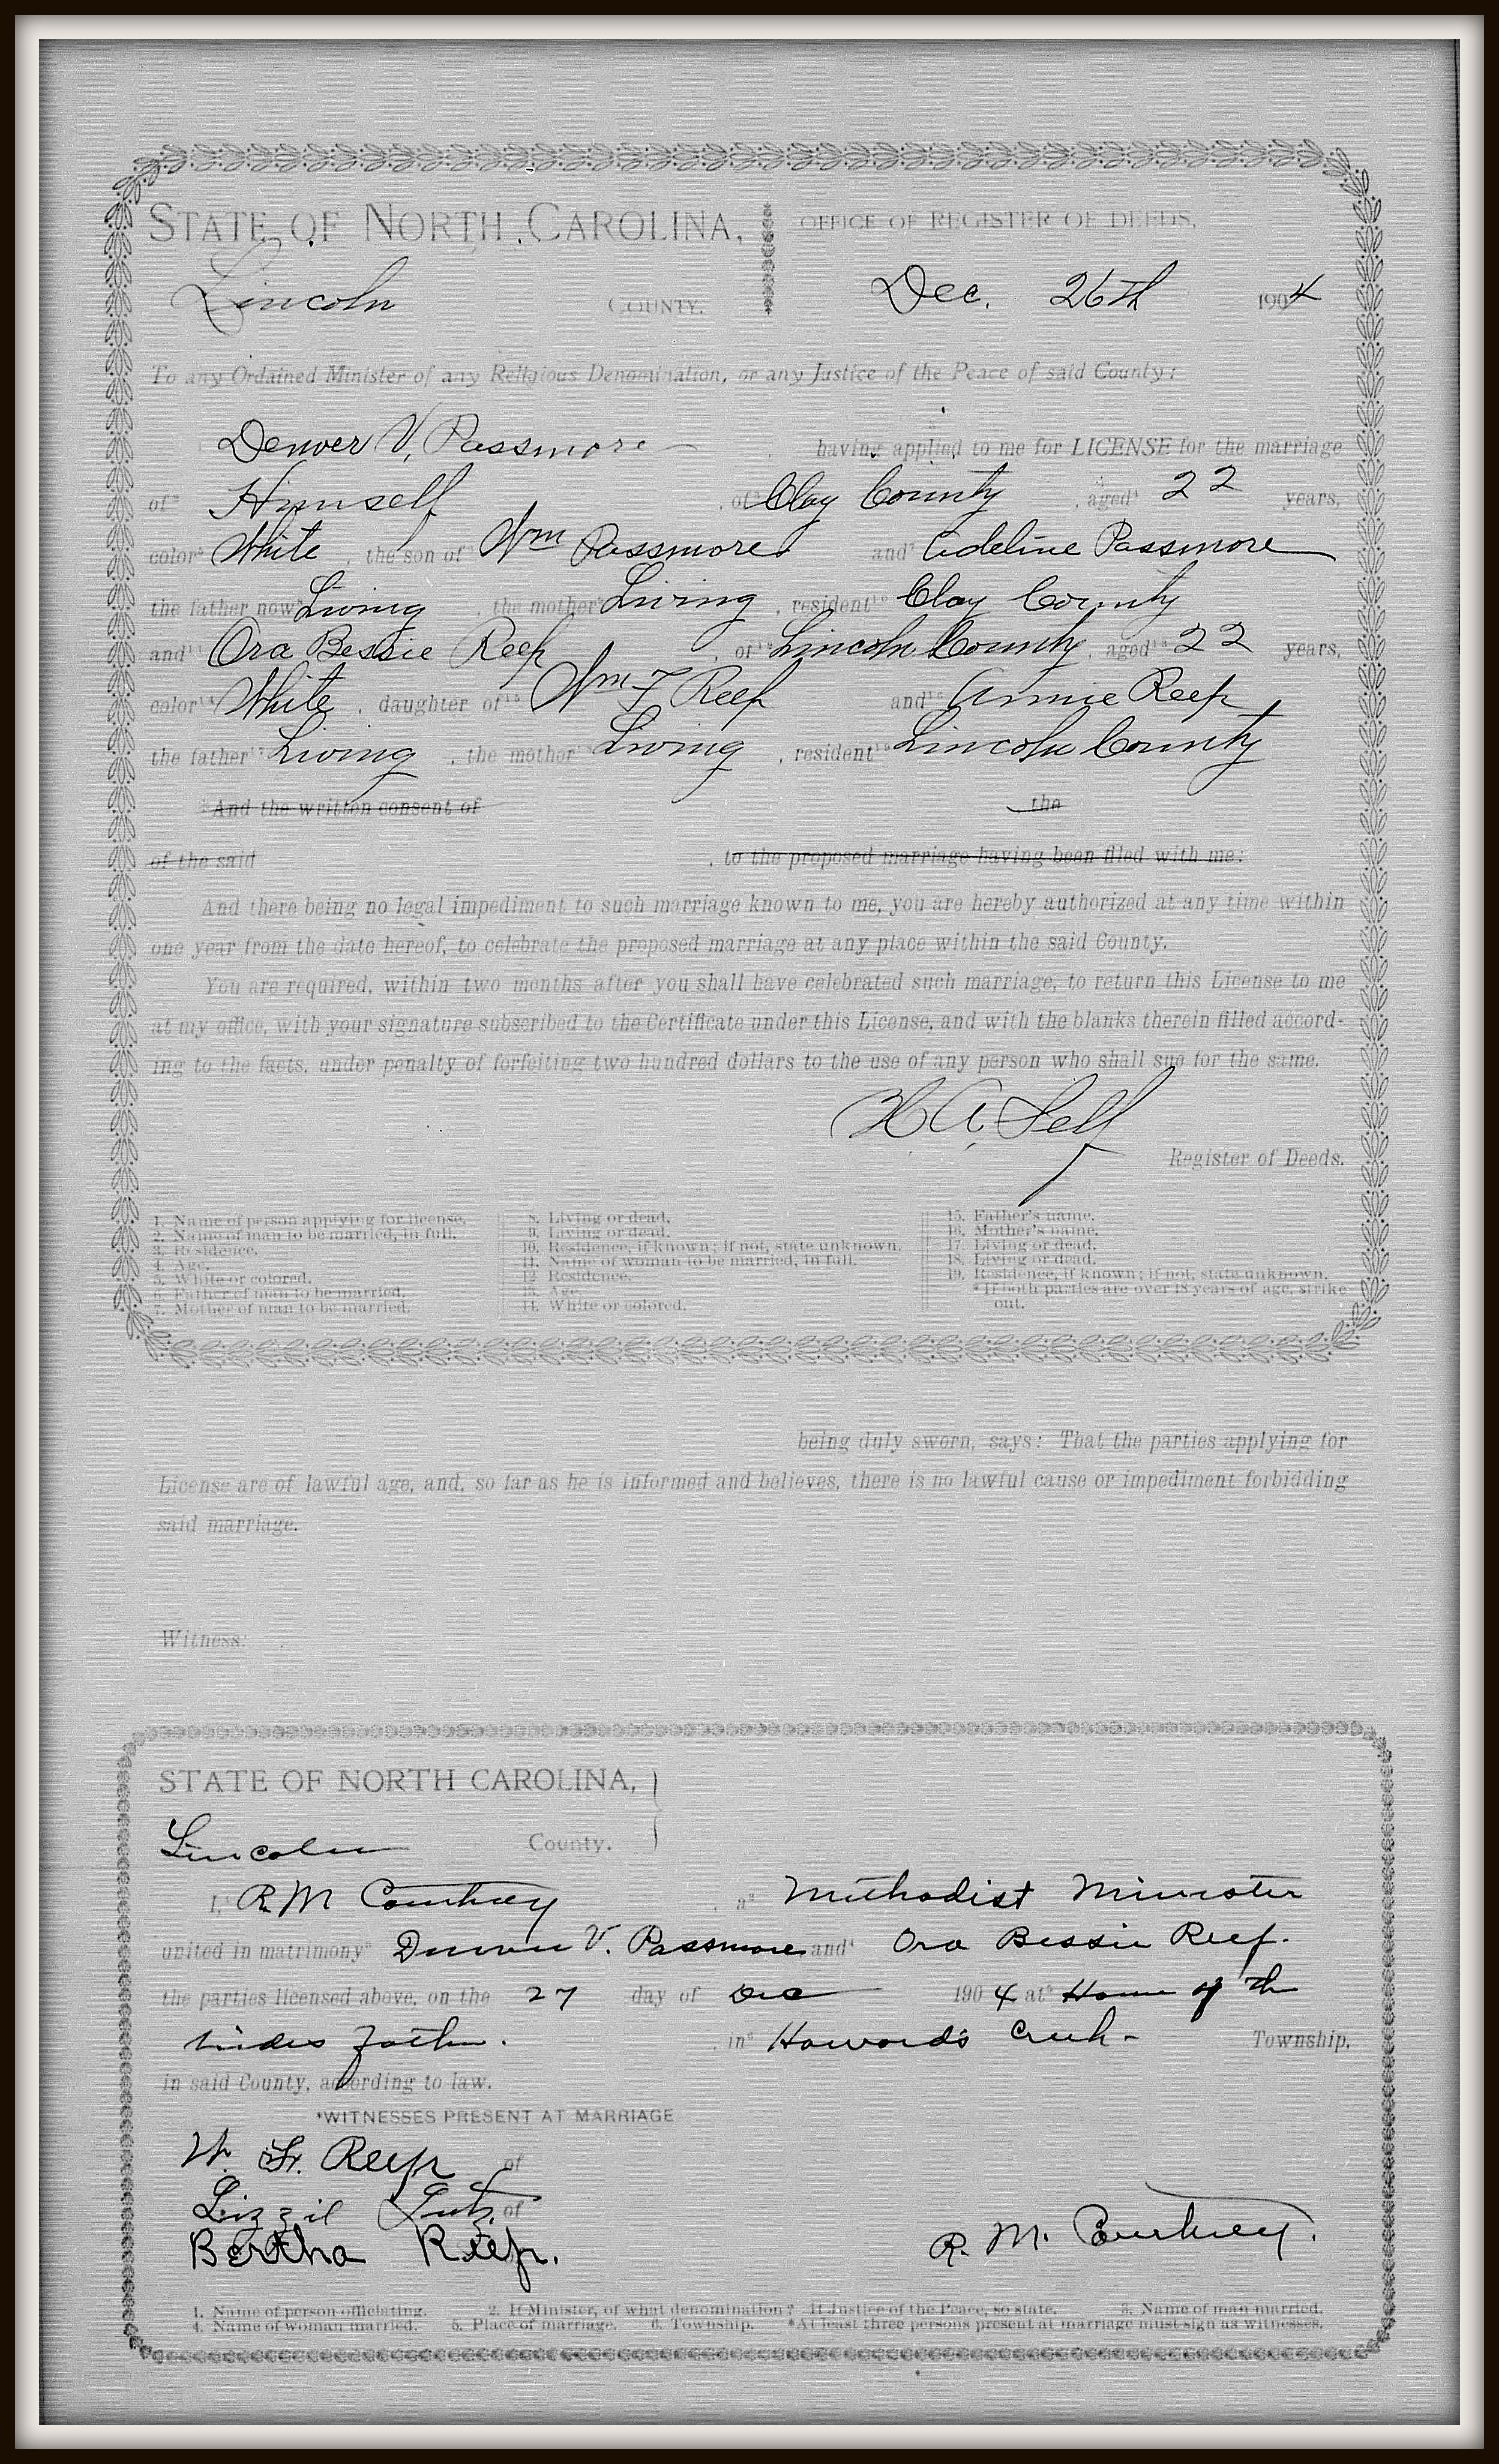 STATE OF NORTH CAROLINA,
OFFICE OF REGISTER OF DEEDS,
Lincoln COUNTY.
Dec. 26th 1904
To any Ordained Minister of any Religious Denomination, or any Justice of the Peace of said County:
Denver V. Passmore having applied to me for LICENSE for the marriage
of² Himself, of³ Clay County, aged⁴ 22 years,
color⁵ White, the son of⁶ Wm Passmore and⁷ Adeline Passmore
the father now⁸ Living, the mother⁹ Living, resident¹⁰ Clay County
and¹¹ Ora Bessie Reep, of¹² Lincoln County, aged¹³ 22 years,
color¹⁴ White, daughter of¹⁵ Wm F Reep and¹⁶ Annie Reep,
the father¹⁷ Living, the mother¹⁸ Living, resident¹⁹ Lincoln County
*And the written consent of the
of the said, to the proposed marriage having been filed with me:
And there being no legal impediment to such marriage known to me, you are hereby authorized at any time within
one year from the date hereof, to celebrate the proposed marriage at any place within the said County.
You are required, within two months after you shall have celebrated such marriage, to return this License to me
at my office, with your signature subscribed to the Certificate under this License, and with the blanks therein filled accord-
ing to the facts, under penalty of forfeiting two hundred dollars to the use of any person who shall sue for the same.
H A Self
Register of Deeds.
1. Name of person applying for license.
2. Name of man to be married, in full.
3. Residence.
4. Age.
5. White or colored.
6. Father of man to be married.
7. Mother of man to be married.
8. Living or dead.
9. Living or dead.
10. Residence, if known; if not, state unknown.
11. Name of woman to be married, in full.
12 Residence.
13. Age.
14. White or colored.
15. Father's name.
16. Mother's name.
17. Living or dead.
18. Living or dead.
19. Residence, if known; if not, state unknown.
*If both parties are over 18 years of age, strike
out.
being duly sworn, says: That the parties applying for
License are of lawful age, and, so far as he is informed and believes, there is no lawful cause or impediment forbidding
said marriage.
Witness:
STATE OF NORTH CAROLINA,
Lincoln County.
I,¹ R M Courtney, a² Methodist Minister
united in matrimony³ Denver V. Passmore and⁴ Ora Bessie Reep.
the parties licensed above, on the 27 day of Dec 1904 at⁵ Home of the
brides father., in⁶ Howard's Creek - Township,
in said County, according to law.
*WITNESSES PRESENT AT MARRIAGE
W. F. Reep of
Lizzie Lutz of
Bertha Reep.
R. M. Courtney.
1. Name of person officiating. 2. If Minister, of what denomination? If Justice of the Peace, so state. 3. Name of man married.
4. Name of woman married. 5. Place of marriage. 6. Township. *At least three persons present at marriage must sign as witnesses.